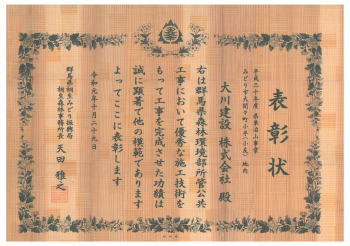 表彰状
平成三十年度 県単治山事業
みどり市大間々町小平(小友)地内
大川建設 株式会社 殿
右は群馬県森林環境部所管公共
工事において優秀な施工技術を
もって工事を完成させた功績は
誠に顕著で他の模範であります
よってここに表彰します
令和元年十月二十九日
群馬県桐生みどり振興局
桐生森林事務所長 天田 雅之